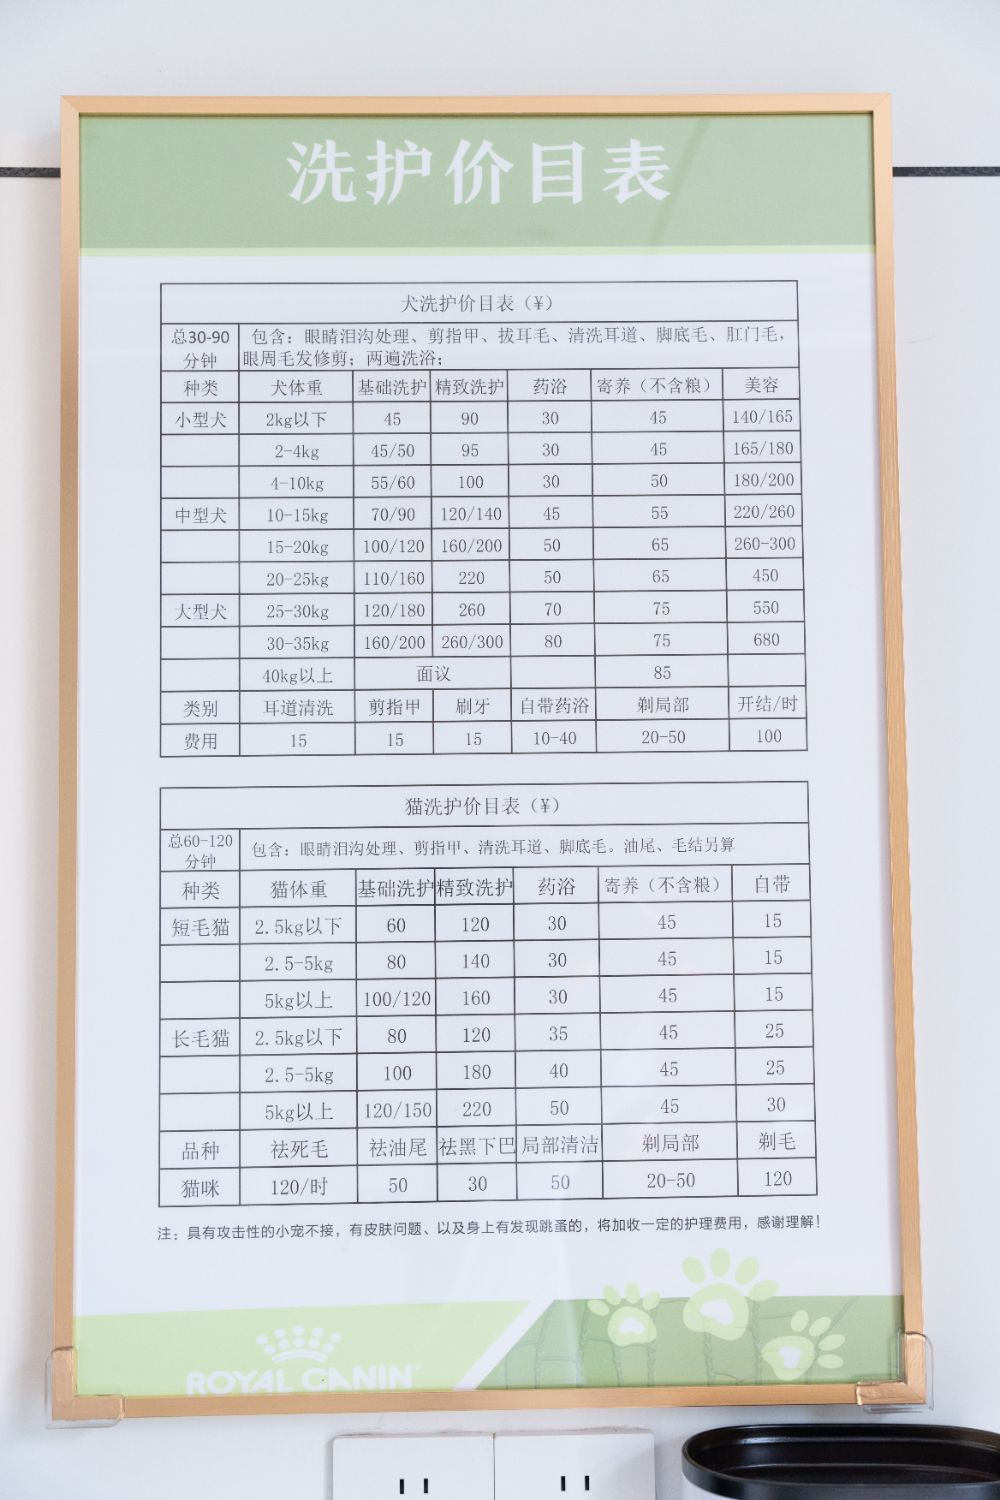 洗护价目表
犬洗护价目表（¥）
总30-90分钟 包含：眼睛泪沟处理、剪指甲、拔耳毛、清洗耳道、脚底毛、肛门毛，
眼周毛发修剪；两遍洗浴；
种类 犬体重 基础洗护 精致洗护 药浴 寄养（不含粮） 美容
小型犬 2kg以下 45 90 30 45 140/165
2-4kg 45/50 95 30 45 165/180
4-10kg 55/60 100 30 50 180/200
中型犬 10-15kg 70/90 120/140 45 55 220/260
15-20kg 100/120 160/200 50 65 260-300
20-25kg 110/160 220 50 65 450
大型犬 25-30kg 120/180 260 70 75 550
30-35kg 160/200 260/300 80 75 680
40kg以上 面议 85
类别 耳道清洗 剪指甲 刷牙 自带药浴 剃局部 开结/时
费用 15 15 15 10-40 20-50 100
猫洗护价目表（¥）
总60-120分钟 包含：眼睛泪沟处理、剪指甲、清洗耳道、脚底毛。油尾、毛结另算
种类 猫体重 基础洗护 精致洗护 药浴 寄养（不含粮） 自带
短毛猫 2.5kg以下 60 120 30 45 15
2.5-5kg 80 140 30 45 15
5kg以上 100/120 160 30 45 15
长毛猫 2.5kg以下 80 120 35 45 25
2.5-5kg 100 180 40 45 25
5kg以上 120/150 220 50 45 30
品种 祛死毛 祛油尾 祛黑下巴 局部清洁 剃局部 剃毛
猫咪 120/时 50 30 50 20-50 120
注：具有攻击性的小宠不接，有皮肤问题、以及身上有发现跳蚤的，将加收一定的护理费用，感谢理解！
ROYAL CANIN